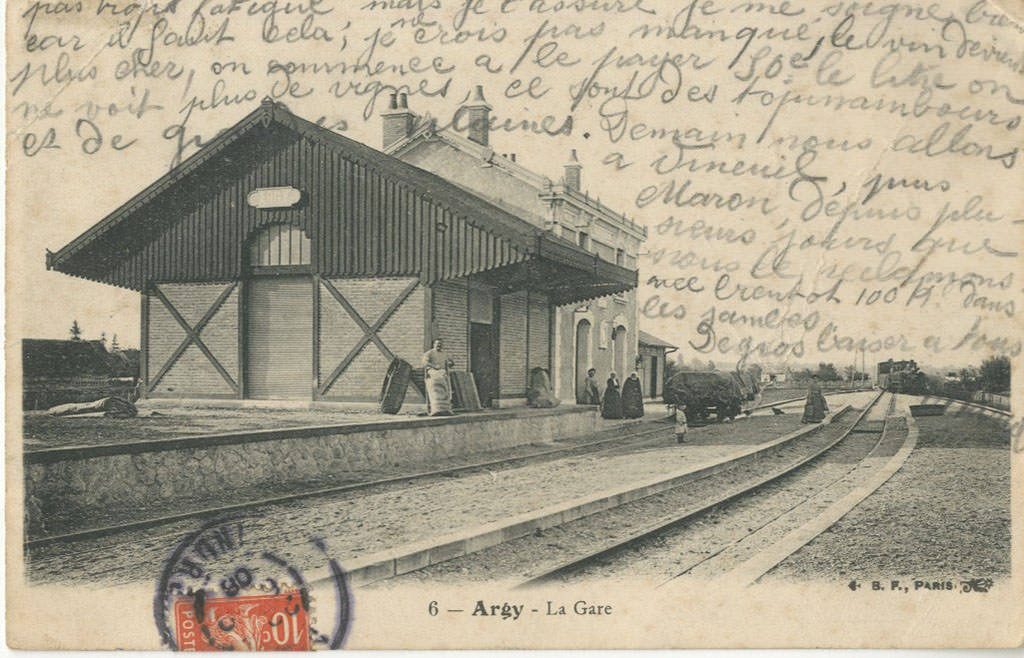 pas trop fatigué mais je t'assure je me soigne bien
car il faut cela, je crois pas manqué, le vin devient
plus cher, on commence a le payer 50c le litre on
ne voit plus de vignes ce sont des topinambours
et de plaines. Demain nous allons
a Vineuil, puis
Maron, depuis plu-
sieurs jours que
nous le reclamons
100 dans
les
De gros baiser a tous
6 — Argy - La Gare
B. F., PARIS
INDRE
09
10
c.
POSTES